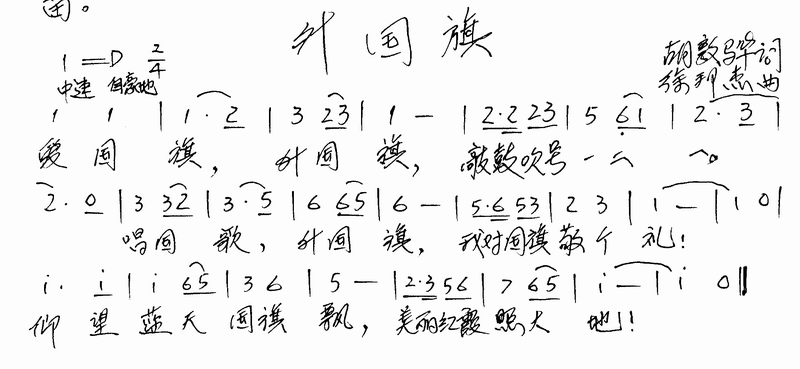 面。
升国旗
1=D 2/4
中速 自豪地
胡敦骅词
徐邦杰曲
1 1 | 1·2 | 3 23 | 1 - | 2·2 23 | 5 61 | 2·3 |
爱国旗，升国旗，敲鼓吹号一二一。
2·0 | 3 32 | 3·5 | 6 65 | 6 - | 5·6 53 | 2 3 | 1 - | 1 0 |
唱国歌，升国旗，我对国旗敬个礼！
i· i | i 65 | 3 6 | 5 - | 2·3 56 | 7 65 | i - | i 0 ‖
仰望蓝天国旗飘，美丽红霞照大地！